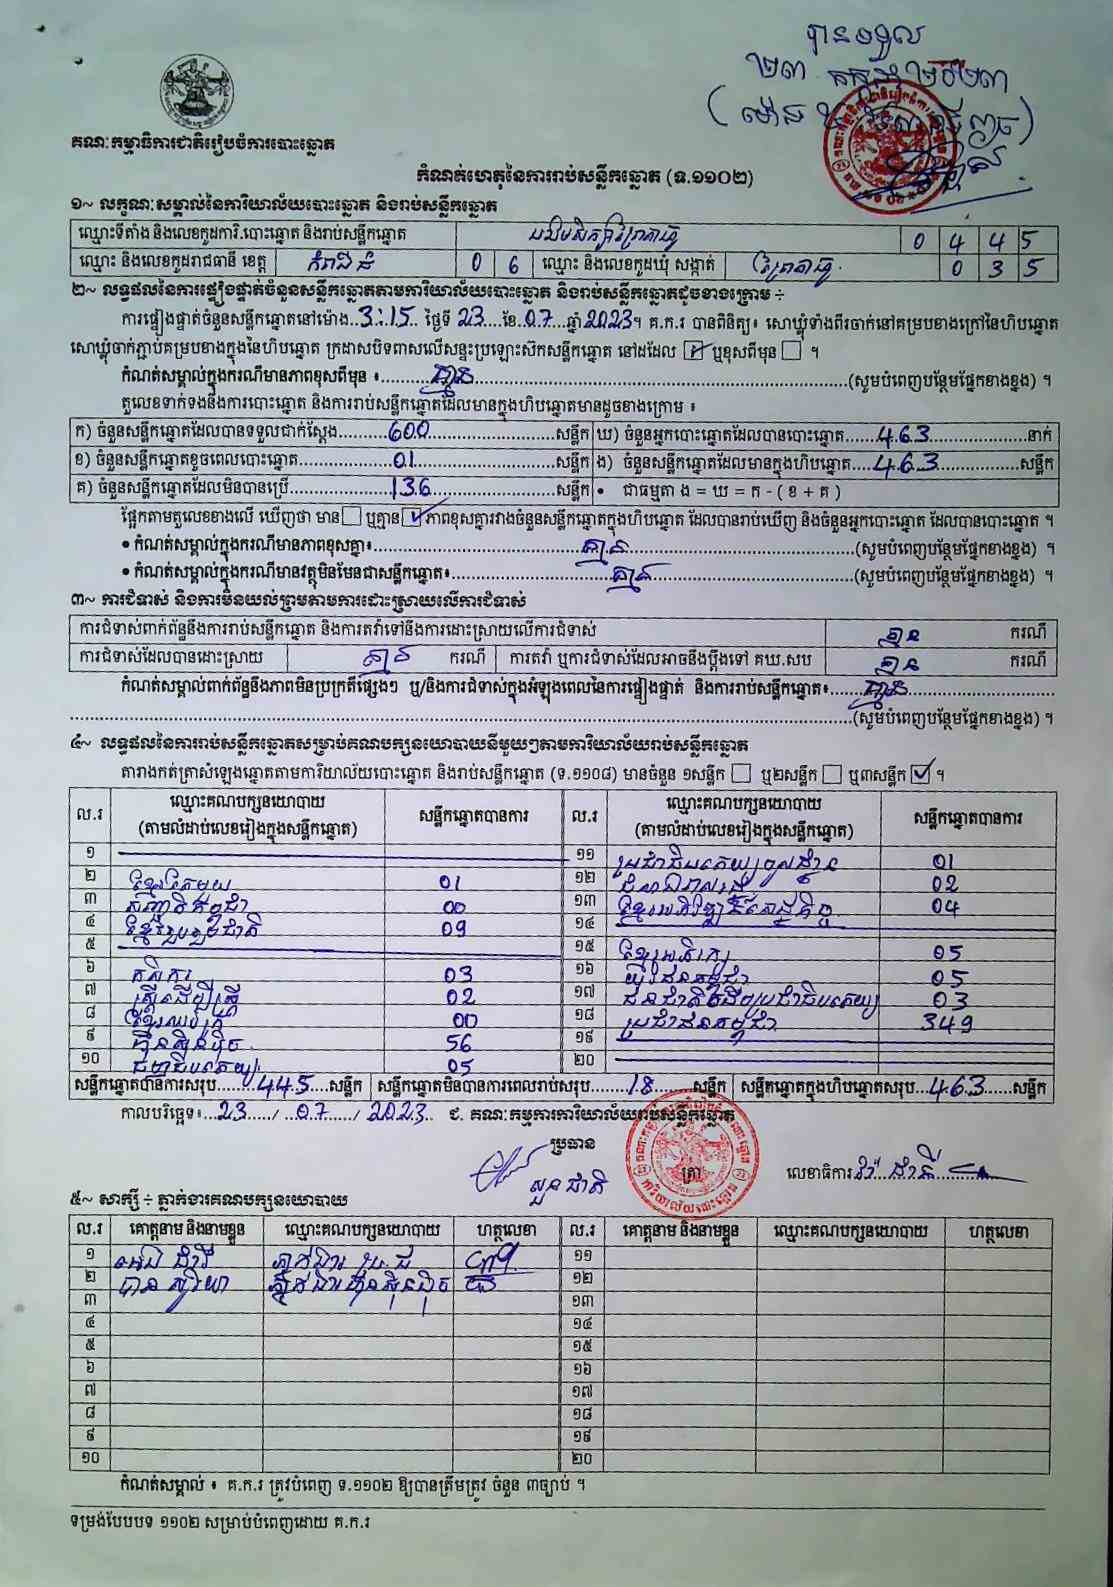 បានទទួល
២៣ កក្កដា ២០២៣
គណៈកម្មាធិការជាតិរៀបចំការបោះឆ្នោត
កំណត់ហេតុនៃការរាប់សន្លឹកឆ្នោត (ទ.១១០២)
១~ លក្ខណៈសម្គាល់នៃការិយាល័យបោះឆ្នោត និងរាប់សន្លឹកឆ្នោត
ឈ្មោះទីតាំង និងលេខកូដការិ.បោះឆ្នោត និងរាប់សន្លឹកឆ្នោត 0 4 4 5
ឈ្មោះ និងលេខកូដរាជធានី ខេត្ត កំពង់ធំ 0 6 ឈ្មោះ និងលេខកូដឃុំ សង្កាត់ 0 3 5
២~ លទ្ធផលនៃការផ្ទៀងផ្ទាត់ចំនួនសន្លឹកឆ្នោតតាមការិយាល័យបោះឆ្នោត និងរាប់សន្លឹកឆ្នោតដូចខាងក្រោម ÷
ការផ្ទៀងផ្ទាត់ចំនួនសន្លឹកឆ្នោតនៅម៉ោង 3:15 ថ្ងៃទី 23 ខែ 07 ឆ្នាំ 2023។ គ.ក.រ បានពិនិត្យ៖ សោឃ្លុំទាំងពីរចាក់នៅគម្របខាងក្រៅនៃហិបឆ្នោត
សោឃ្លុំចាក់ភ្ជាប់គម្របខាងក្នុងនៃហិបឆ្នោត ក្រដាសបិទពាសលើសន្ទះប្រឡោះស៊កសន្លឹកឆ្នោត នៅដដែល ☑ ឬខុសពីមុន ☐ ។
កំណត់សម្គាល់ក្នុងករណីមានភាពខុសពីមុន ៖ គ្មាន (សូមបំពេញបន្ថែមផ្នែកខាងខ្នង) ។
តួលេខទាក់ទងនឹងការបោះឆ្នោត និងការរាប់សន្លឹកឆ្នោតដែលមានក្នុងហិបឆ្នោតមានដូចខាងក្រោម ៖
ក) ចំនួនសន្លឹកឆ្នោតដែលបានទទួលជាក់ស្តែង 600 សន្លឹក ឃ) ចំនួនអ្នកបោះឆ្នោតដែលបានបោះឆ្នោត 463 នាក់
ខ) ចំនួនសន្លឹកឆ្នោតខូចពេលបោះឆ្នោត 01 សន្លឹក ង) ចំនួនសន្លឹកឆ្នោតដែលមានក្នុងហិបឆ្នោត 463 សន្លឹក
គ) ចំនួនសន្លឹកឆ្នោតដែលមិនបានប្រើ 136 សន្លឹក • ជាធម្មតា ង = ឃ = ក - ( ខ + គ )
ផ្អែកតាមតួលេខខាងលើ ឃើញថា មាន ☐ ឬគ្មាន ☑ ភាពខុសគ្នារវាងចំនួនសន្លឹកឆ្នោតក្នុងហិបឆ្នោត ដែលបានរាប់ឃើញ និងចំនួនអ្នកបោះឆ្នោត ដែលបានបោះឆ្នោត ។
• កំណត់សម្គាល់ក្នុងករណីមានភាពខុសគ្នា៖ គ្មាន (សូមបំពេញបន្ថែមផ្នែកខាងខ្នង) ។
• កំណត់សម្គាល់ក្នុងករណីមានវត្ថុមិនមែនជាសន្លឹកឆ្នោត៖ គ្មាន (សូមបំពេញបន្ថែមផ្នែកខាងខ្នង) ។
៣~ ការជំទាស់ និងការមិនយល់ព្រមតាមការដោះស្រាយលើការជំទាស់
ការជំទាស់ពាក់ព័ន្ធនឹងការរាប់សន្លឹកឆ្នោត និងការតវ៉ាទៅនឹងការដោះស្រាយលើការជំទាស់ គ្មាន ករណី
ការជំទាស់ដែលបានដោះស្រាយ គ្មាន ករណី ការតវ៉ា ឬការជំទាស់ដែលអាចនឹងប្តឹងទៅ គឃ.សប គ្មាន ករណី
កំណត់សម្គាល់ពាក់ព័ន្ធនឹងភាពមិនប្រក្រតីផ្សេងៗ ឬ/និងការជំទាស់ក្នុងអំឡុងពេលនៃការផ្ទៀងផ្ទាត់ និងការរាប់សន្លឹកឆ្នោត៖ គ្មាន
(សូមបំពេញបន្ថែមផ្នែកខាងខ្នង) ។
៤~ លទ្ធផលនៃការរាប់សន្លឹកឆ្នោតសម្រាប់គណបក្សនយោបាយនីមួយៗតាមការិយាល័យរាប់សន្លឹកឆ្នោត
តារាងកត់ត្រាសំឡេងឆ្នោតតាមការិយាល័យបោះឆ្នោត និងរាប់សន្លឹកឆ្នោត (ទ.១១០៨) មានចំនួន ១សន្លឹក ☐ ឬ២សន្លឹក ☐ ឬ៣សន្លឹក ☑ ។
ល.រ ឈ្មោះគណបក្សនយោបាយ (តាមលំដាប់លេខរៀងក្នុងសន្លឹកឆ្នោត) សន្លឹកឆ្នោតបានការ ល.រ ឈ្មោះគណបក្សនយោបាយ (តាមលំដាប់លេខរៀងក្នុងសន្លឹកឆ្នោត) សន្លឹកឆ្នោតបានការ
១ ១១ 01
២ ខ្មែរតែមួយ 01 ១២ 02
៣ 00 ១៣ ខ្មែរអភិវឌ្ឍន៍សេដ្ឋកិច្ច 04
៤ ខ្មែររួបរួមជាតិ 09 ១៤
៥ ១៥ 05
៦ កសិករ 03 ១៦ 05
៧ ស្ត្រីដើម្បីស្ត្រី 02 ១៧ 03
៨ 00 ១៨ ប្រជាជនកម្ពុជា 349
៩ ហ៊្វុនស៊ិនប៉ិច 56 ១៩
១០ 05 ២០
សន្លឹកឆ្នោតបានការសរុប 445 សន្លឹក សន្លឹកឆ្នោតមិនបានការពេលរាប់សរុប 18 សន្លឹក សន្លឹកឆ្នោតក្នុងហិបឆ្នោតសរុប 463 សន្លឹក
កាលបរិច្ឆេទ៖ 23 / 07 / 2023 ជ. គណៈកម្មការការិយាល័យរាប់សន្លឹកឆ្នោត
ប្រធាន
ត្រា លេខាធិការ
សួន ជាតិ
៥~ សាក្សី ÷ ភ្នាក់ងារគណបក្សនយោបាយ
ល.រ គោត្តនាម និងនាមខ្លួន ឈ្មោះគណបក្សនយោបាយ ហត្ថលេខា ល.រ គោត្តនាម និងនាមខ្លួន ឈ្មោះគណបក្សនយោបាយ ហត្ថលេខា
១ ១១
២ ភ្នាក់ងារហ៊្វុនស៊ិនប៉ិច ១២
៣ ១៣
៤ ១៤
៥ ១៥
៦ ១៦
៧ ១៧
៨ ១៨
៩ ១៩
១០ ២០
កំណត់សម្គាល់ ៖ គ.ក.រ ត្រូវបំពេញ ទ.១១០២ ឱ្យបានត្រឹមត្រូវ ចំនួន ៣ច្បាប់ ។
ទម្រង់បែបបទ ១១០២ សម្រាប់បំពេញដោយ គ.ក.រ